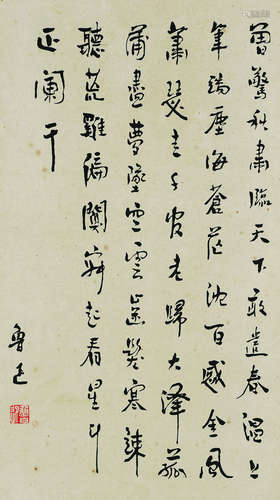 曾驚秋肅臨天下敢遣春溫上
筆端塵海蒼茫沈百感金風
蕭瑟走千官老歸大澤菰
蒲盡夢墜空雲齒髮寒竦
聽荒雞偏闃寂起看星斗
正闌干
魯迅